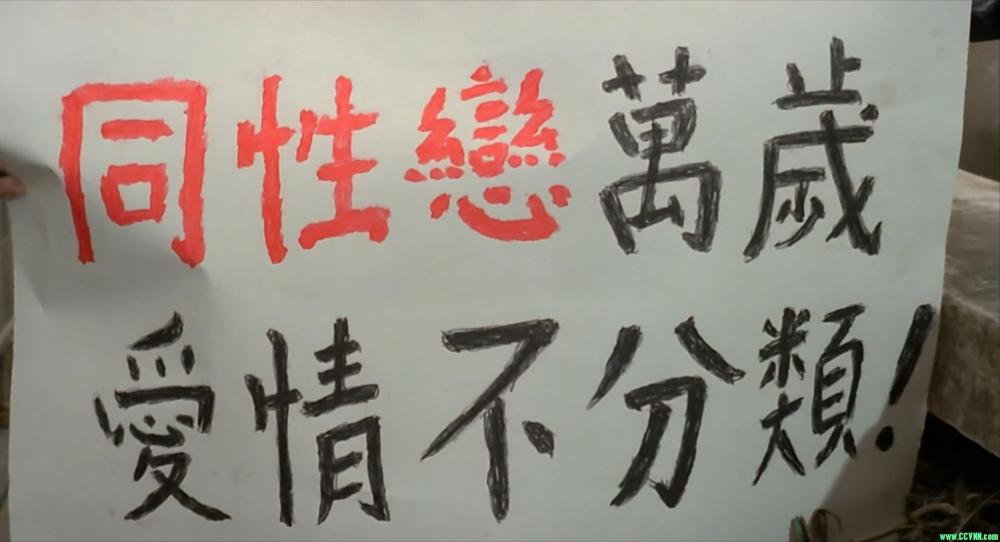 同性戀萬歲
愛情不分類！
www.CCVNN.com